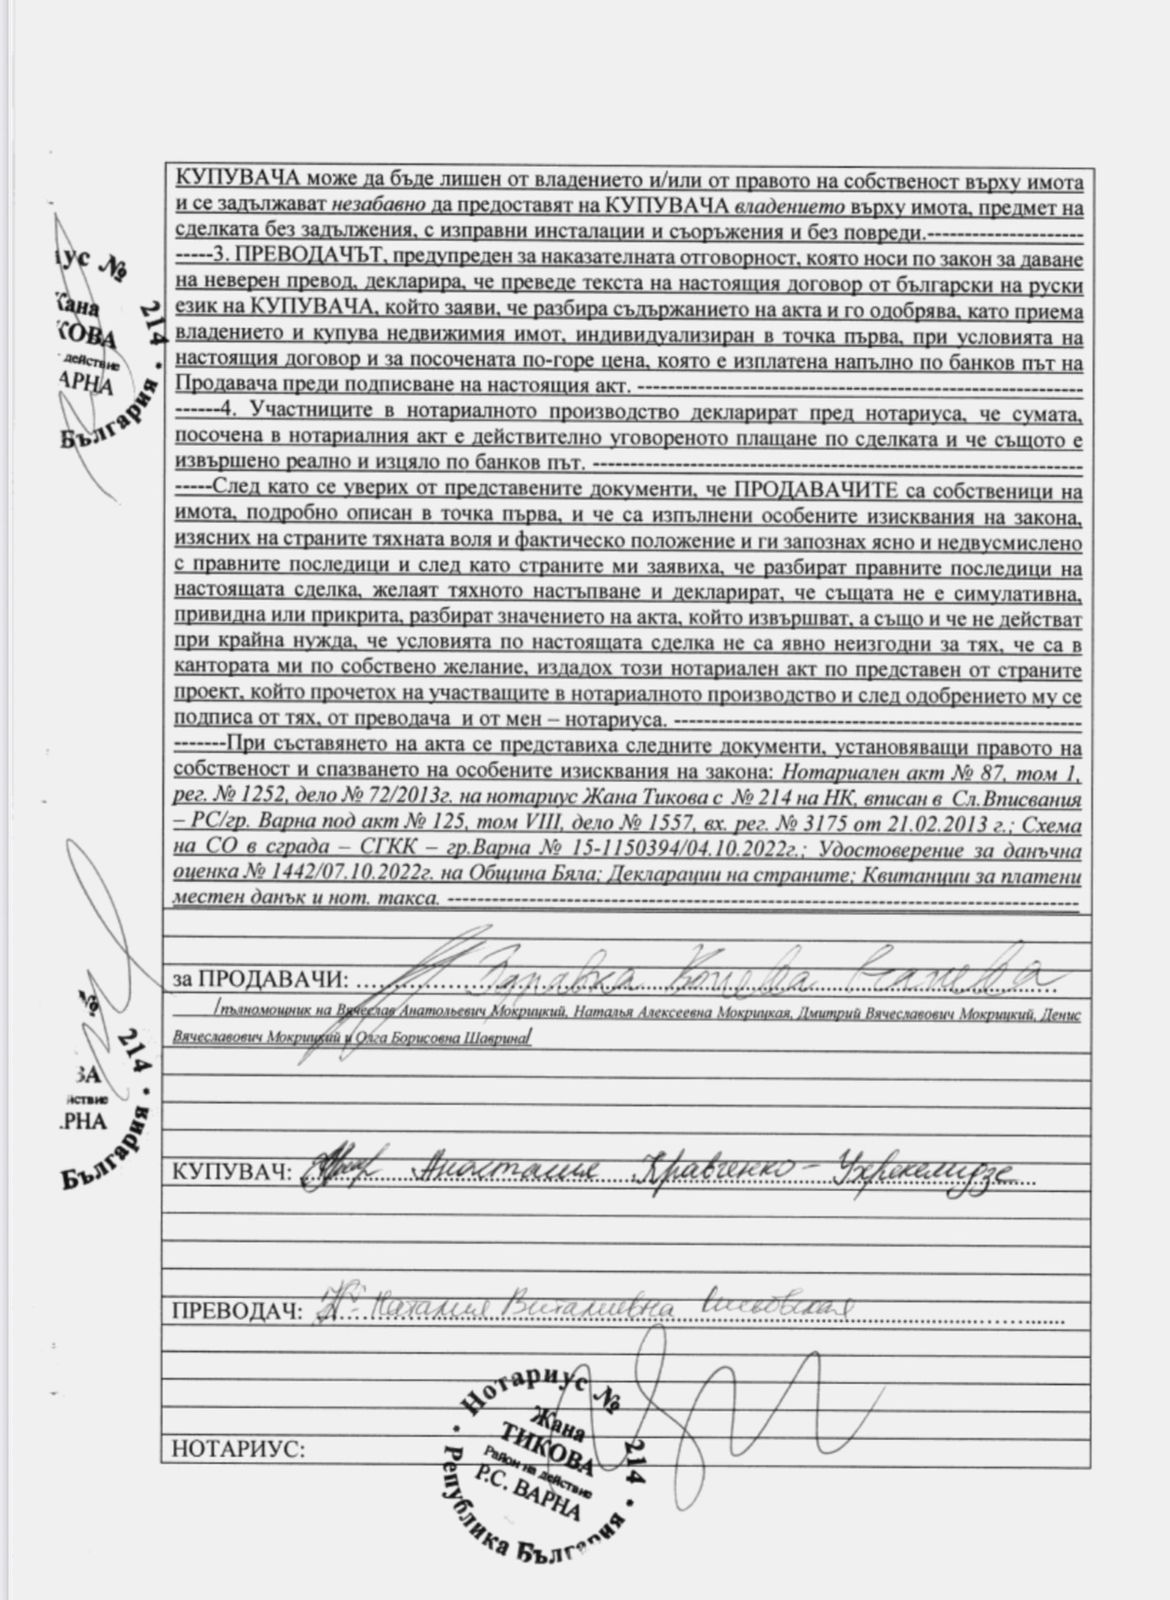 КУПУВАЧА може да бъде лишен от владението и/или от правото на собственост върху имота
и се задължават незабавно да предоставят на КУПУВАЧА владението върху имота, предмет на
сделката без задължения, с изправни инсталации и съоръжения и без повреди.---------------------
-----3. ПРЕВОДАЧЪТ, предупреден за наказателната отговорност, която носи по закон за даване
на неверен превод, декларира, че преведе текста на настоящия договор от български на руски
език на КУПУВАЧА, който заяви, че разбира съдържанието на акта и го одобрява, като приема
владението и купува недвижимия имот, индивидуализиран в точка първа, при условията на
настоящия договор и за посочената по-горе цена, която е изплатена напълно по банков път на
Продавача преди подписване на настоящия акт. ------------------------------------------------------------
------4. Участниците в нотариалното производство декларират пред нотариуса, че сумата,
посочена в нотариалния акт е действително уговореното плащане по сделката и че същото е
извършено реално и изцяло по банков път. ------------------------------------------------------------------
-----След като се уверих от представените документи, че ПРОДАВАЧИТЕ са собственици на
имота, подробно описан в точка първа, и че са изпълнени особените изисквания на закона,
изясних на страните тяхната воля и фактическо положение и ги запознах ясно и недвусмислено
с правните последици и след като страните ми заявиха, че разбират правните последици на
настоящата сделка, желаят тяхното настъпване и декларират, че същата не е симулативна,
привидна или прикрита, разбират значението на акта, който извършват, а също и че не действат
при крайна нужда, че условията по настоящата сделка не са явно неизгодни за тях, че са в
кантората ми по собствено желание, издадох този нотариален акт по представен от страните
проект, който прочетох на участващите в нотариалното производство и след одобрението му се
подписа от тях, от преводача и от мен – нотариуса. -------------------------------------------------------
-------При съставянето на акта се представиха следните документи, установяващи правото на
собственост и спазването на особените изисквания на закона: Нотариален акт № 87, том 1,
рег. № 1252, дело № 72/2013г. на нотариус Жана Тикова с № 214 на НК, вписан в Сл.Вписвания
– РС/гр. Варна под акт № 125, том VIII, дело № 1557, вх. рег. № 3175 от 21.02.2013 г.; Схема
на СО в сграда – СГКК – гр.Варна № 15-1150394/04.10.2022г.; Удостоверение за данъчна
оценка № 1442/07.10.2022г. на Община Бяла; Декларации на страните; Квитанции за платени
местен данък и нот. такса. -------------------------------------------------------------------------------------
за ПРОДАВАЧИ: Здравка
/пълномощник на Вячеслав Анатольевич Мокрицкий, Наталья Алексеевна Мокрицкая, Дмитрий Вячеславович Мокрицкий, Денис
Вячеславович Мокрицкий и Олга Борисовна Шаврина/
КУПУВАЧ: Анастасия Кравченко-
ПРЕВОДАЧ: Наталия Виталиевна
НОТАРИУС:
Нотариус № 214
Жана
ТИКОВА
Район на действие
Р.С. ВАРНА
Република България